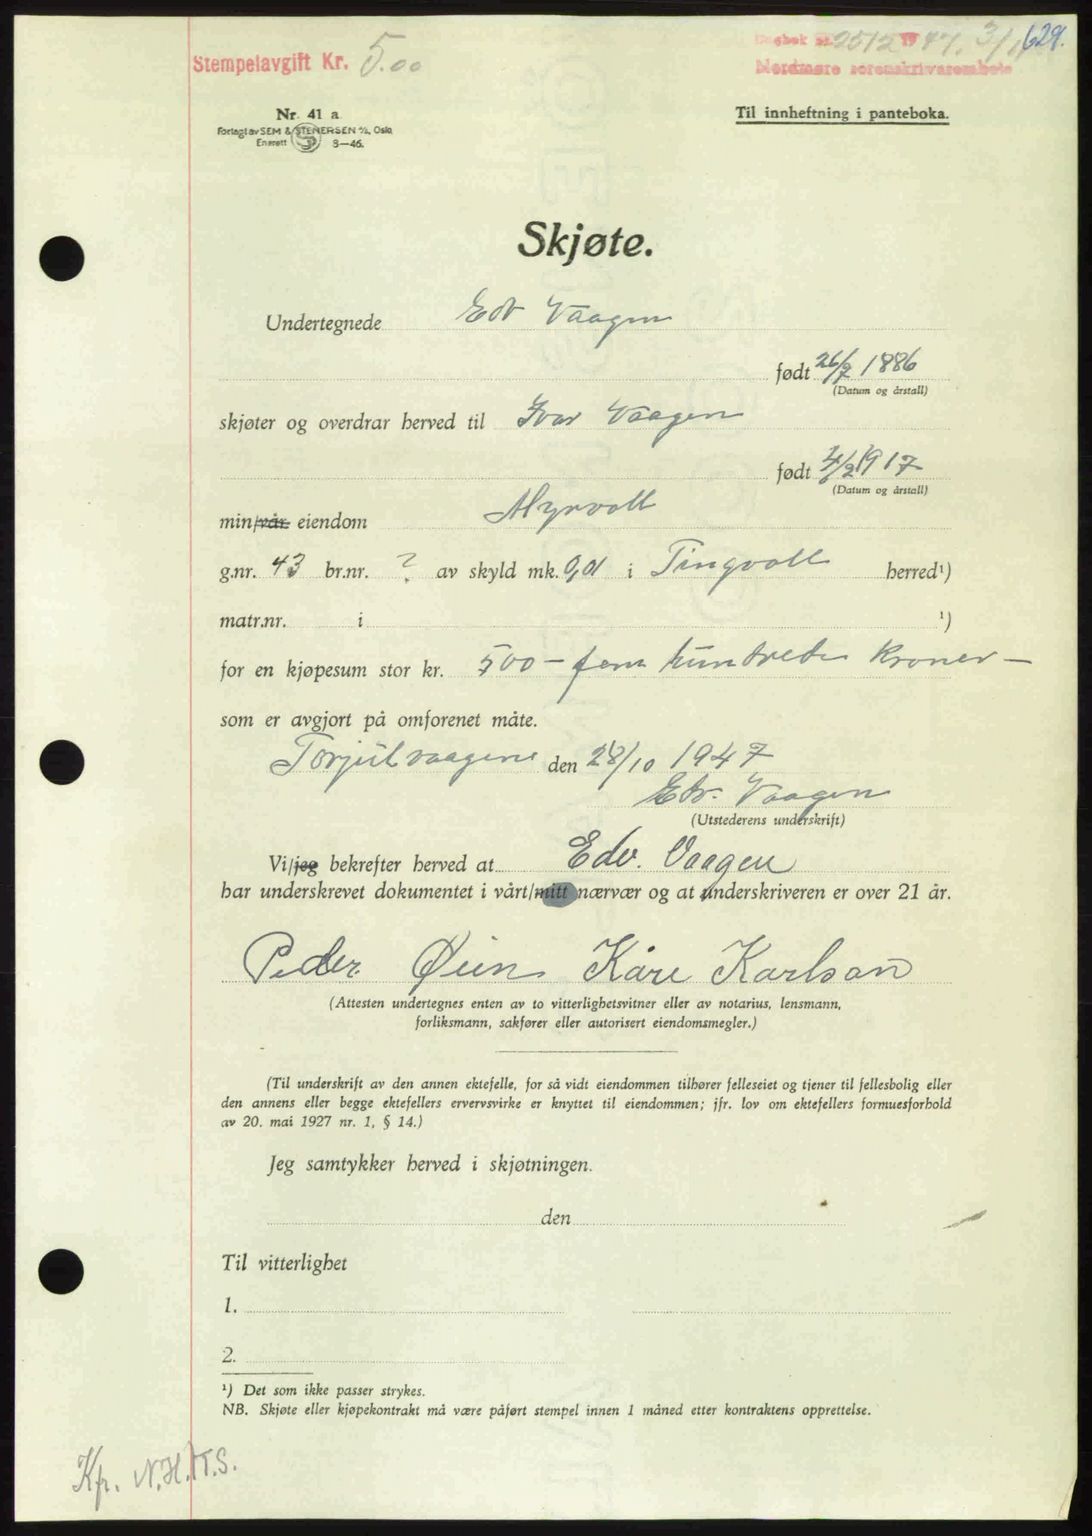 Stempelavgift Kr. 5.00
Dagbok nr. 2512 1947. 3/11 629.
Nordmøre sorenskriverembete
Nr. 41 a
Forlagt av SEM & STENERSEN A/S, Oslo
Enerett 8—46.
Til innheftning i panteboka.
Skjøte.
Undertegnede Edv Vaagen
født 26/7 1886
(Datum og årstall)
skjøter og overdrar herved til Ivar Vaagen
født 4/2 1917
(Datum og årstall)
min/vår eiendom Myrvoll
g.nr. 43 br.nr. ? av skyld mk. 0,01 i Tingvoll herred¹)
matr.nr. i ¹)
for en kjøpesum stor kr. 500 — fem hundrede Kroner —
som er avgjort på omforenet måte.
Torjulvaagen den 28/10 1947
Edv. Vaagen
(Utstederens underskrift)
Vi/jeg bekrefter herved at Edv. Vaagen
har underskrevet dokumentet i vårt/mitt nærvær og at underskriveren er over 21 år.
Peder Øien Kåre Karlsen
(Attesten undertegnes enten av to vitterlighetsvitner eller av notarius, lensmann,
forliksmann, sakfører eller autorisert eiendomsmegler.)
(Til underskrift av den annen ektefelle, for så vidt eiendommen tilhører felleseiet og tjener til fellesbolig eller
den annens eller begge ektefellers ervervsvirke er knyttet til eiendommen; jfr. lov om ektefellers formuesforhold
av 20. mai 1927 nr. 1, § 14.)
Jeg samtykker herved i skjøtningen.
den
Til vitterlighet
1.
2.
¹) Det som ikke passer strykes.
NB. Skjøte eller kjøpekontrakt må være påført stempel innen 1 måned etter kontraktens opprettelse.
Kfr. N.H.T.S.